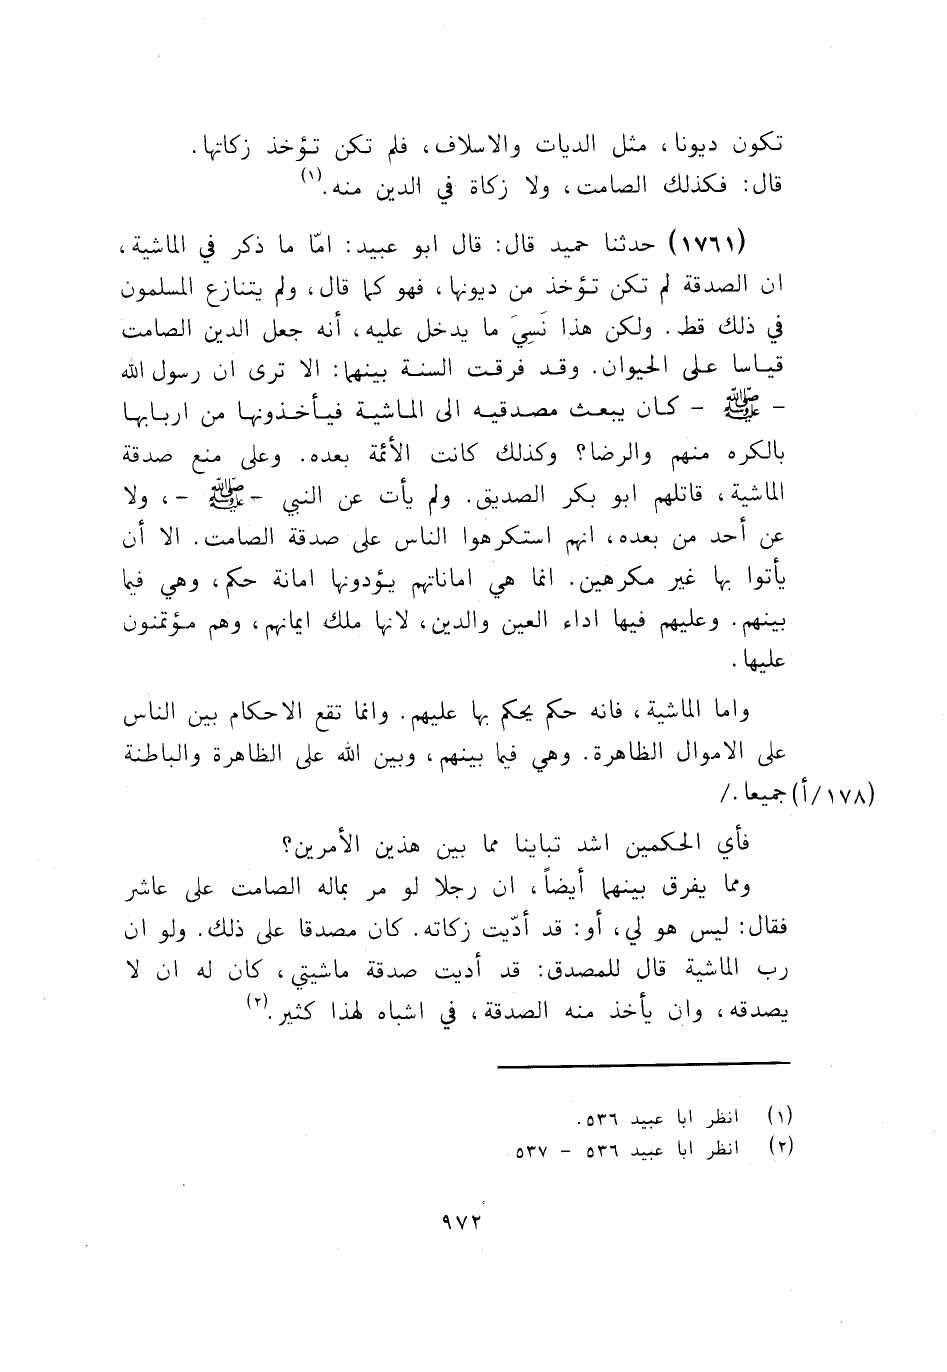 تكون ديونا، مثل الديات والاسلاف، فلم تكن تؤخذ زكاتها.
قال: فكذلك الصامت، ولا زكاة في الدين منه.(١)
(١٧٦١) حدثنا حميد قال: قال ابو عبيد: امّا ما ذكر في الماشية،
ان الصدقة لم تكن تؤخذ من ديونها، فهو كما قال، ولم يتنازع المسلمون
في ذلك قط. ولكن هذا نَسِيَ ما يدخل عليه، أنه جعل الدين الصامت
قياسا على الحيوان. وقد فرقت السنة بينهما: الا ترى ان رسول الله
- ﷺ - كان يبعث مصدقيه الى الماشية فيأخذونها من اربابها
بالكره منهم والرضا؟ وكذلك كانت الأئمة بعده. وعلى منع صدقة
الماشية، قاتلهم ابو بكر الصديق. ولم يأت عن النبي - ﷺ -، ولا
عن أحد من بعده، انهم استكرهوا الناس على صدقة الصامت. الا أن
يأتوا بها غير مكرهين. انما هي اماناتهم يؤدونها امانة حكم، وهي فيما
بينهم. وعليهم فيها اداء العين والدين، لانها ملك ايمانهم، وهم مؤتمنون
عليها.
واما الماشية، فانه حكم يحكم بها عليهم. وانما تقع الاحكام بين الناس
على الاموال الظاهرة. وهي فيما بينهم، وبين الله على الظاهرة والباطنة
(١٧٨/أ) جميعا./
فأي الحكمين اشد تباينا مما بين هذين الأمرين؟
ومما يفرق بينهما أيضاً، ان رجلا لو مر بماله الصامت على عاشر
فقال: ليس هو لي، أو: قد أدّيت زكاته. كان مصدقا على ذلك. ولو ان
رب الماشية قال للمصدق: قد أديت صدقة ماشيتي، كان له ان لا
يصدقه، وان يأخذ منه الصدقة، في اشباه لهذا كثير.(٢)
(١) انظر ابا عبيد ٥٣٦.
(٢) انظر ابا عبيد ٥٣٦ - ٥٣٧
٩٧٢